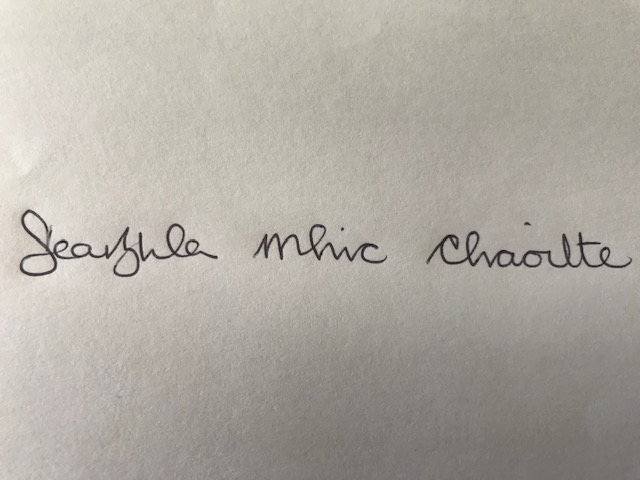 Dearbhla Mhic Chaoilte